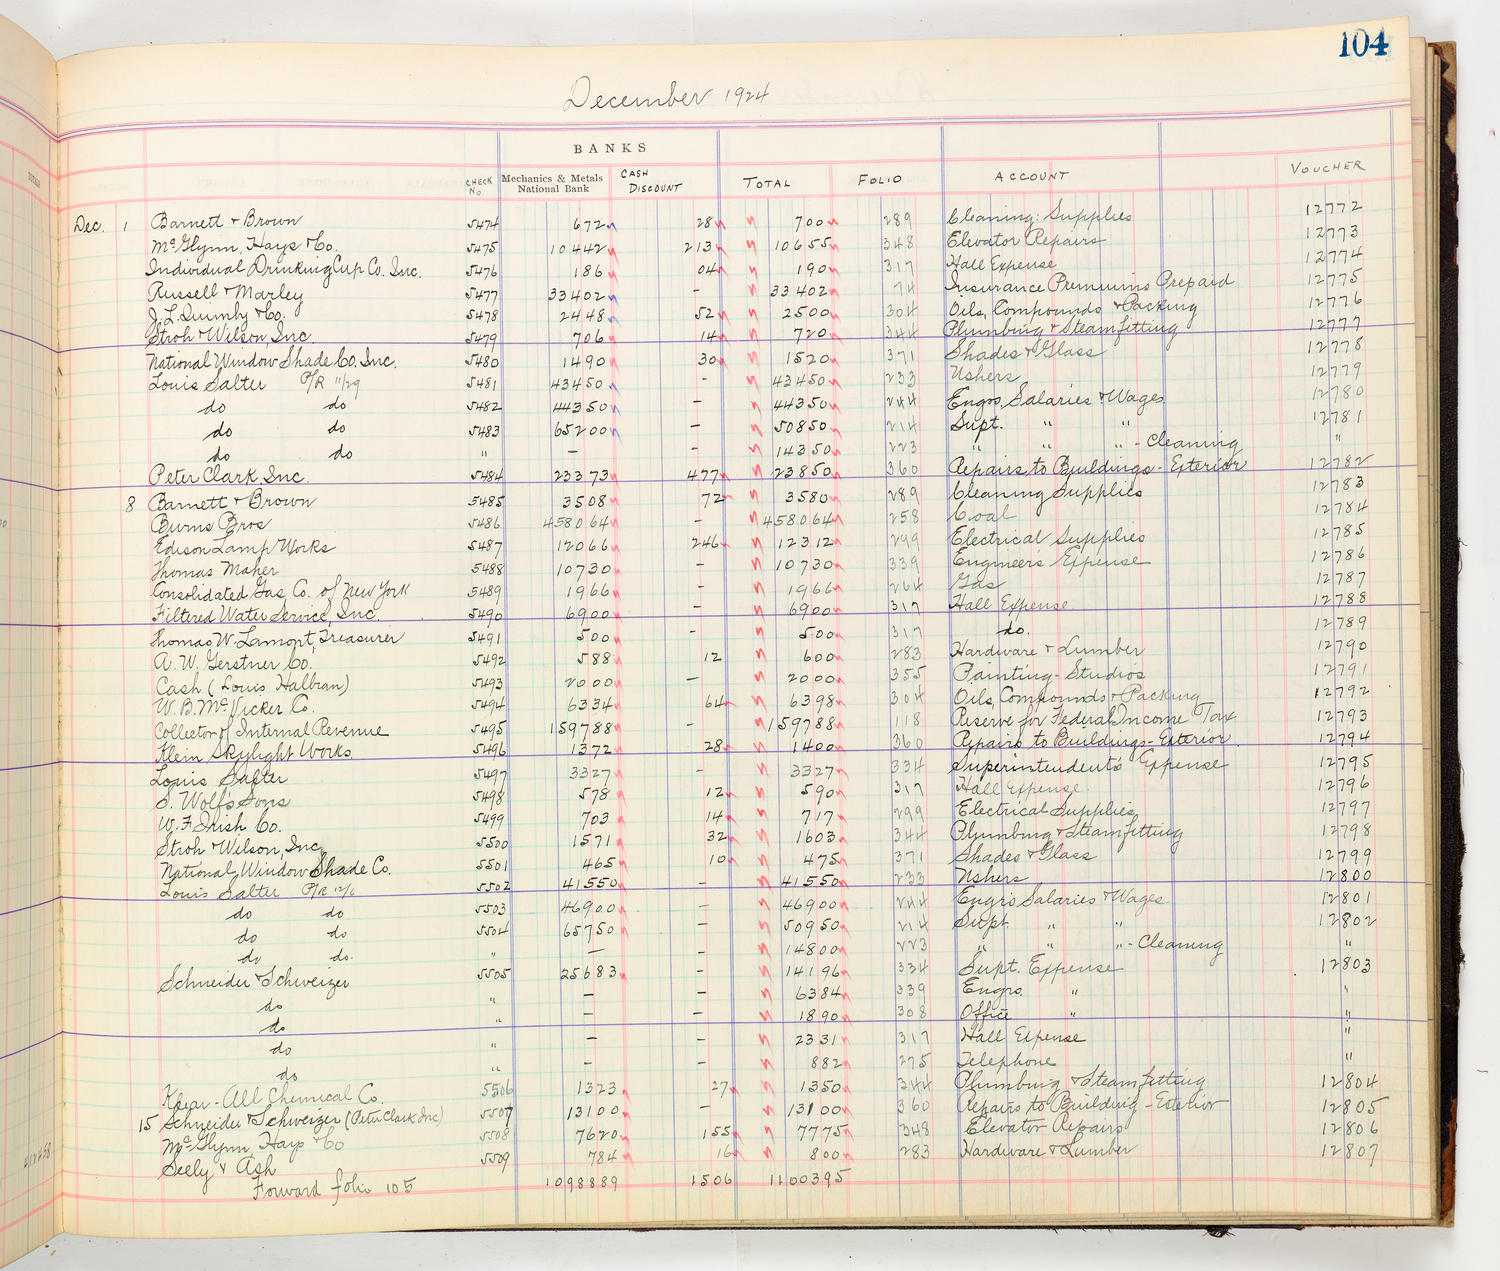 104
December 1924
BANKS
CHECK No. Mechanics & Metals National Bank CASH DISCOUNT TOTAL FOLIO ACCOUNT VOUCHER
Dec. 1 Barnett & Brown 5474 672 28 700 289 Cleaning Supplies 12772
McGlynn, Hays & Co. 5475 10442 213 10655 348 Elevator Repairs 12773
Individual Drinking Cup Co. Inc. 5476 186 04 190 317 Hall Expense 12774
Russell & Marley 5477 33402 - 33402 74 Insurance Premiums Prepaid 12775
J. L. Quimby & Co. 5478 2448 52 2500 304 Oils, Compounds & Packing 12776
Stroh & Wilson, Inc. 5479 706 14 720 344 Plumbing & Steamfitting 12777
National Window Shade Co. Inc. 5480 1490 30 1520 371 Shades & Glass 12778
Louis Salter P/R 11/29 5481 43450 - 43450 233 Ushers 12779
do do 5482 44350 - 44350 244 Engrs. Salaries & Wages 12780
do do 5483 65200 - 50850 214 Supt. " " 12781
do do " - 14350 223 " " " - Cleaning "
Peter Clark Inc. 5484 23373 477 23850 360 Repairs to Buildings - Exterior 12782
8 Barnett & Brown 5485 3508 72 3580 289 Cleaning Supplies 12783
Burns Bros 5486 458064 - 458064 258 Coal 12784
Edison Lamp Works 5487 12066 246 12312 299 Electrical Supplies 12785
Thomas Maher 5488 10730 - 10730 339 Engineer's Expense 12786
Consolidated Gas Co. of New York 5489 1966 - 1966 264 Gas 12787
Filtered Water Service, Inc. 5490 6900 - 6900 317 Hall Expense 12788
Thomas W. Lamont, Treasurer 5491 500 - 500 317 do. 12789
A. W. Gerstner Co. 5492 588 12 600 283 Hardware & Lumber 12790
Cash (Louis Halbran) 5493 2000 - 2000 355 Painting - Studios 12791
W. B. McVicker Co. 5494 6334 64 6398 304 Oils, Compounds & Packing 12792
Collector of Internal Revenue 5495 159788 - 159788 118 Reserve for Federal Income Tax 12793
Klein Skylight Works. 5496 1372 28 1400 360 Repairs to Buildings - Exterior. 12794
Louis Salter 5497 3327 - 3327 334 Superintendent's Expense 12795
S. Wolf's Sons 5498 578 12 590 317 Hall Expense. 12796
W. F. Irish Co. 5499 703 14 717 299 Electrical Supplies 12797
Stroh & Wilson, Inc. 5500 1571 32 1603 344 Plumbing & Steamfitting 12798
National Window Shade Co. 5501 465 10 475 371 Shades & Glass 12799
Louis Salter P/R 12/6 5502 41550 - 41550 233 Ushers 12800
do do 5503 46900 - 46900 244 Engrs Salaries & Wages 12801
do do 5504 65750 - 50950 214 Supt. " " 12802
do do. " - 14800 223 " " " - Cleaning "
Schneider & Schweizer 5505 25683 - 14196 334 Supt. Expense 12803
do " - - 6384 339 Engrs. " "
do " - - 1890 308 Office " "
do " - - 2331 317 Hall Expense "
do " - - 882 275 Telephone "
Klear-All Chemical Co. 5506 1323 27 1350 344 Plumbing & Steamfitting 12804
15 Schneider & Schweizer (Peter Clark Inc) 5507 13100 - 13100 360 Repairs to Building - Exterior 12805
McGlynn, Hays & Co 5508 7620 155 7775 348 Elevator Repairs 12806
Seely & Ash 5509 784 16 800 283 Hardware & Lumber 12807
Forward folio 105 1098889 1506 1100395